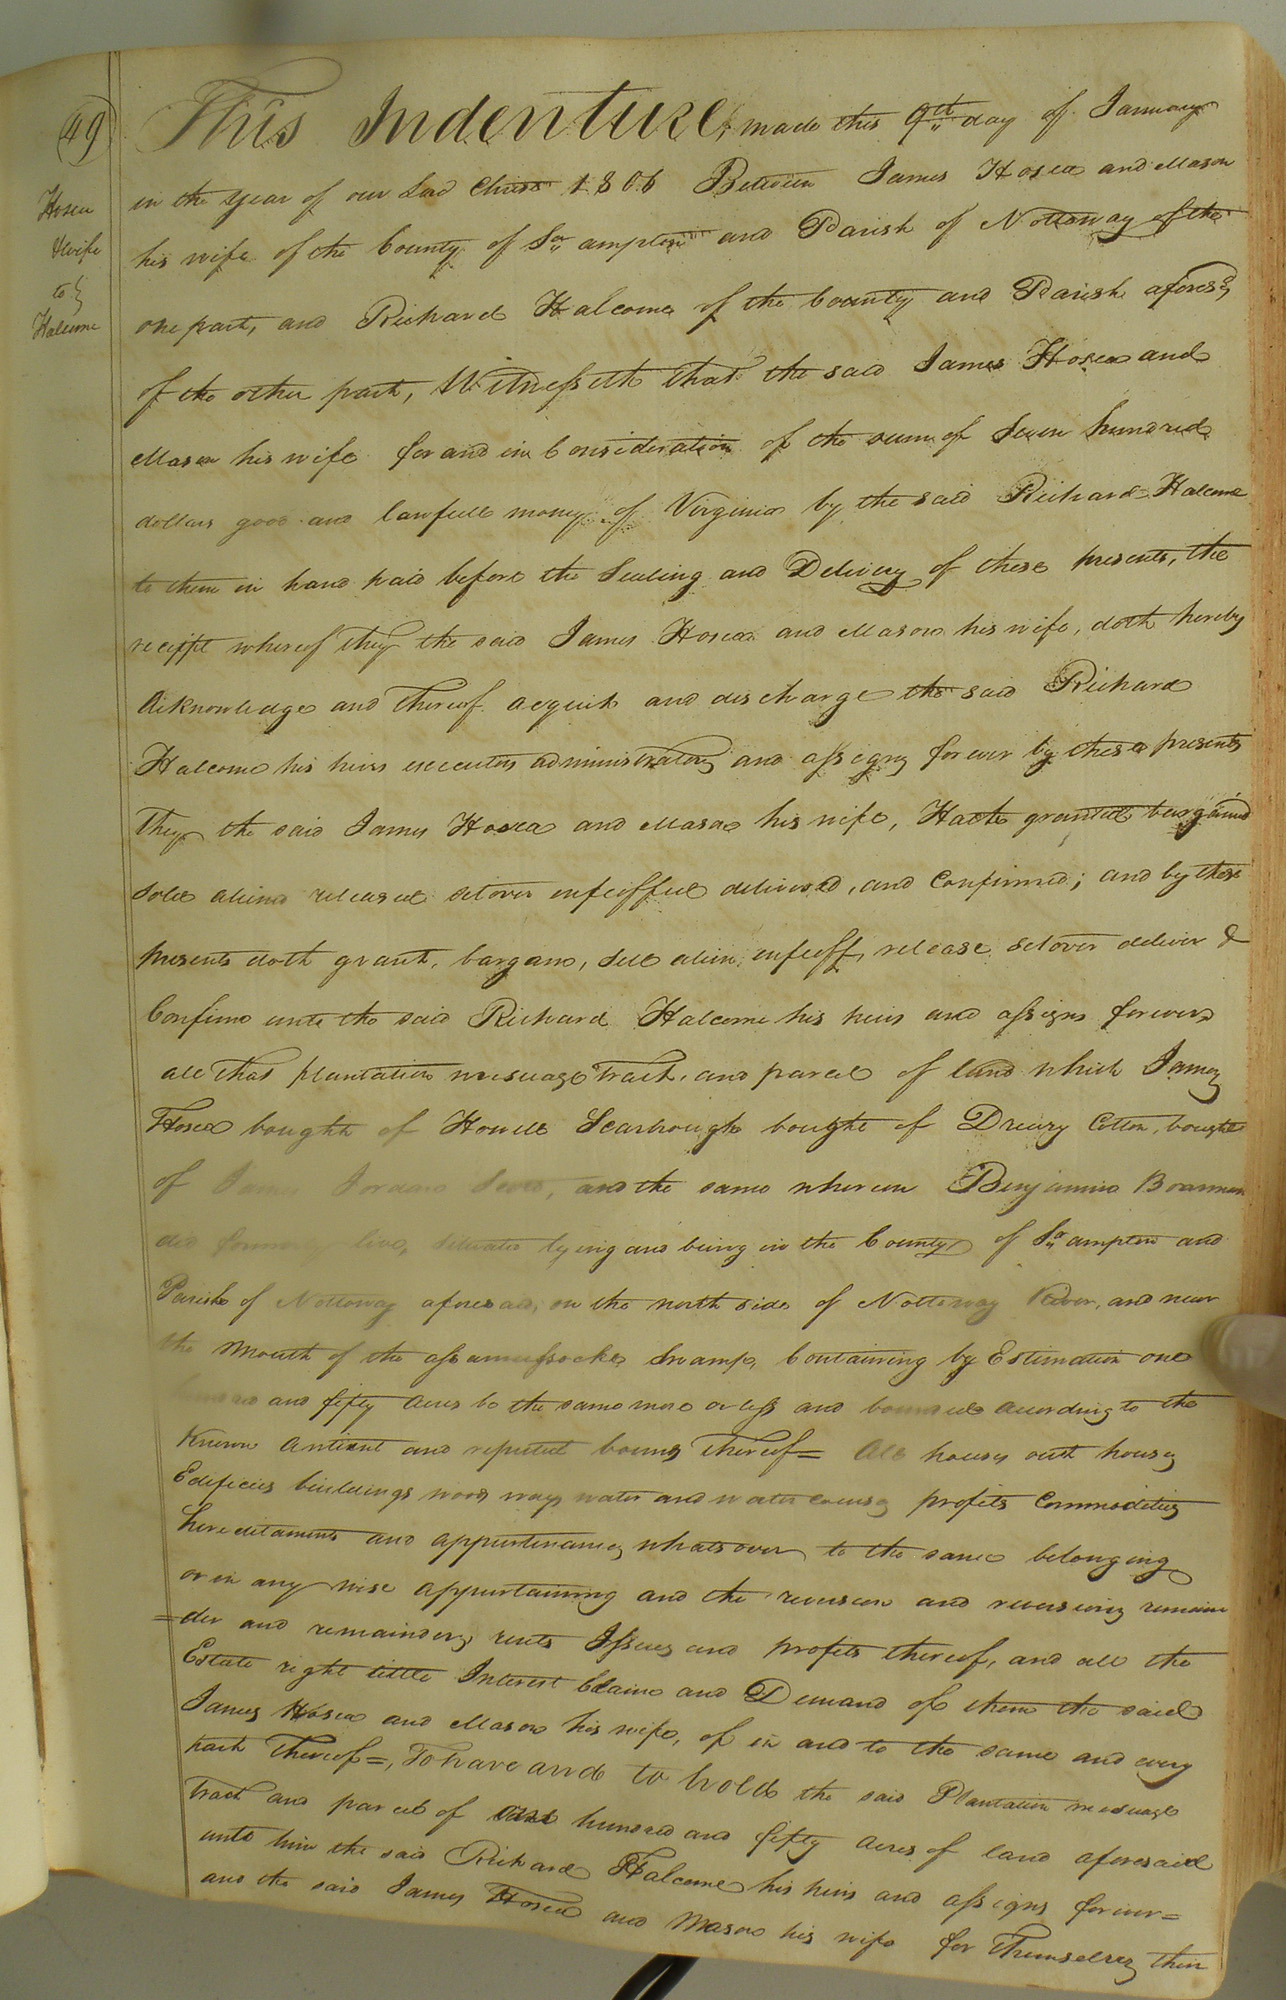 49
Hosea
& wife
to
Halcome
This Indenture, made this 9th day of January
in the year of our Lord Christ 1806 Between James Hosea and Mason
his wife of the County of So.ampton and Parish of Nottoway of the
one part, and Richard Halcome of the County and Parish aforesd.
of the other part, Witnesseth that the said James Hosea and
Mason his wife for and in Consideration of the sum of Seven hundred
dollars good and lawfull money of Virginia by the said Richard Halcome
to them in hand paid before the Sealing and Delivery of these presents, the
receipt whereof they the said James Hosea and Mason his wife, doth hereby
Acknowledge and thereof acquit and discharge the said Richard
Halcome his heirs executors administrators and assigns forever by these presents
they the said James Hosea and Mason his wife, Hath granted bargained
sold aliend released setover infeoffed delivered, and Confirmed; and by these
presents doth grant, bargain, sell alien, infeoff, release setover deliver &
Confirm unto the said Richard Halcome his heirs and assigns forever
all that plantation mesuage tract, and parcel of land which James
Hosea bought of Howell Scarbrough bought of Drewry Cotton, bought
of Jordan and the same wherein Benjamin Brannan
did formerly live, Situate lying and being in the County of So.ampton and
Parish of Nottoway aforesaid, on the north side of Nottoway River, and near
the Mouth of the assamussocke Swamp, Containing by Estimation one
hundred and fifty acres be the same more or less and bounded according to the
known Antient and reputed bounds thereof= All houses out houses
Edifices buildings woods ways water and water courses profits Commodities
hereditaments and appurtenances whatsover to the same belonging
or in any wise appurtaining and the reversion and reversions remain
=der and remainders, rents Issues and profits thereof, and all the
Estate right tittle Interest Claim and Demand of them the said
James Hosea and Mason his wife, of in and to the same and every
part thereof=, To have and to hold the said Plantation mesuage
tract and parcel of one hundred and fifty acres of land aforesaid
unto him the said Richard Halcome his heirs and assigns forever=
and the said James Hosea and Mason his wife for themselves their